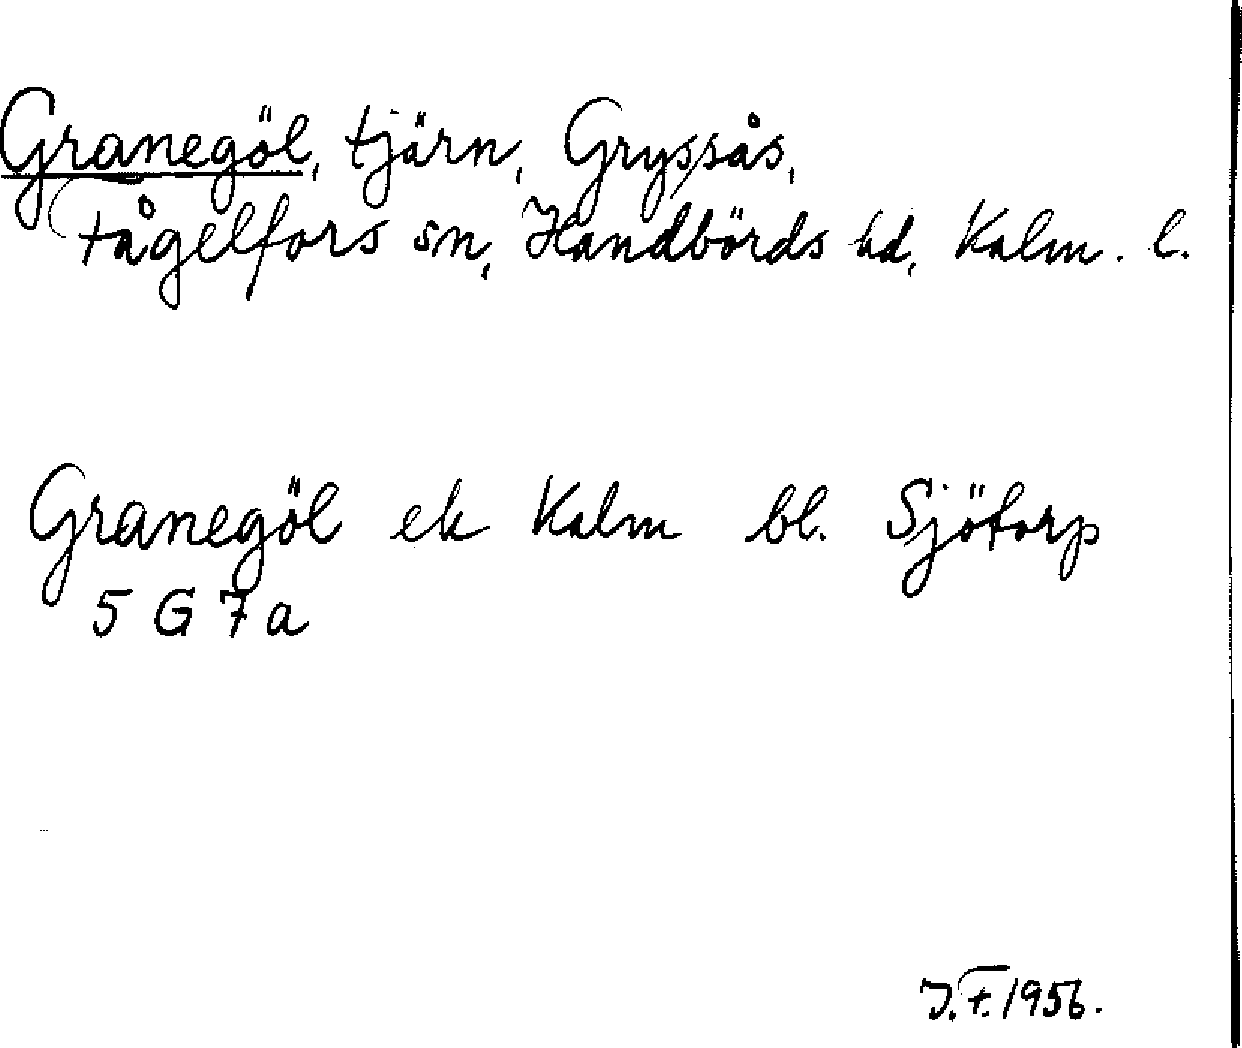 Granegöl, tjärn, Gryssås,
Fågelfors sn, Handbörds hd, Kalm. l.
Granegöl ek Kalm bl. Sjötorp
5 G 7 a
J. F. 1956.